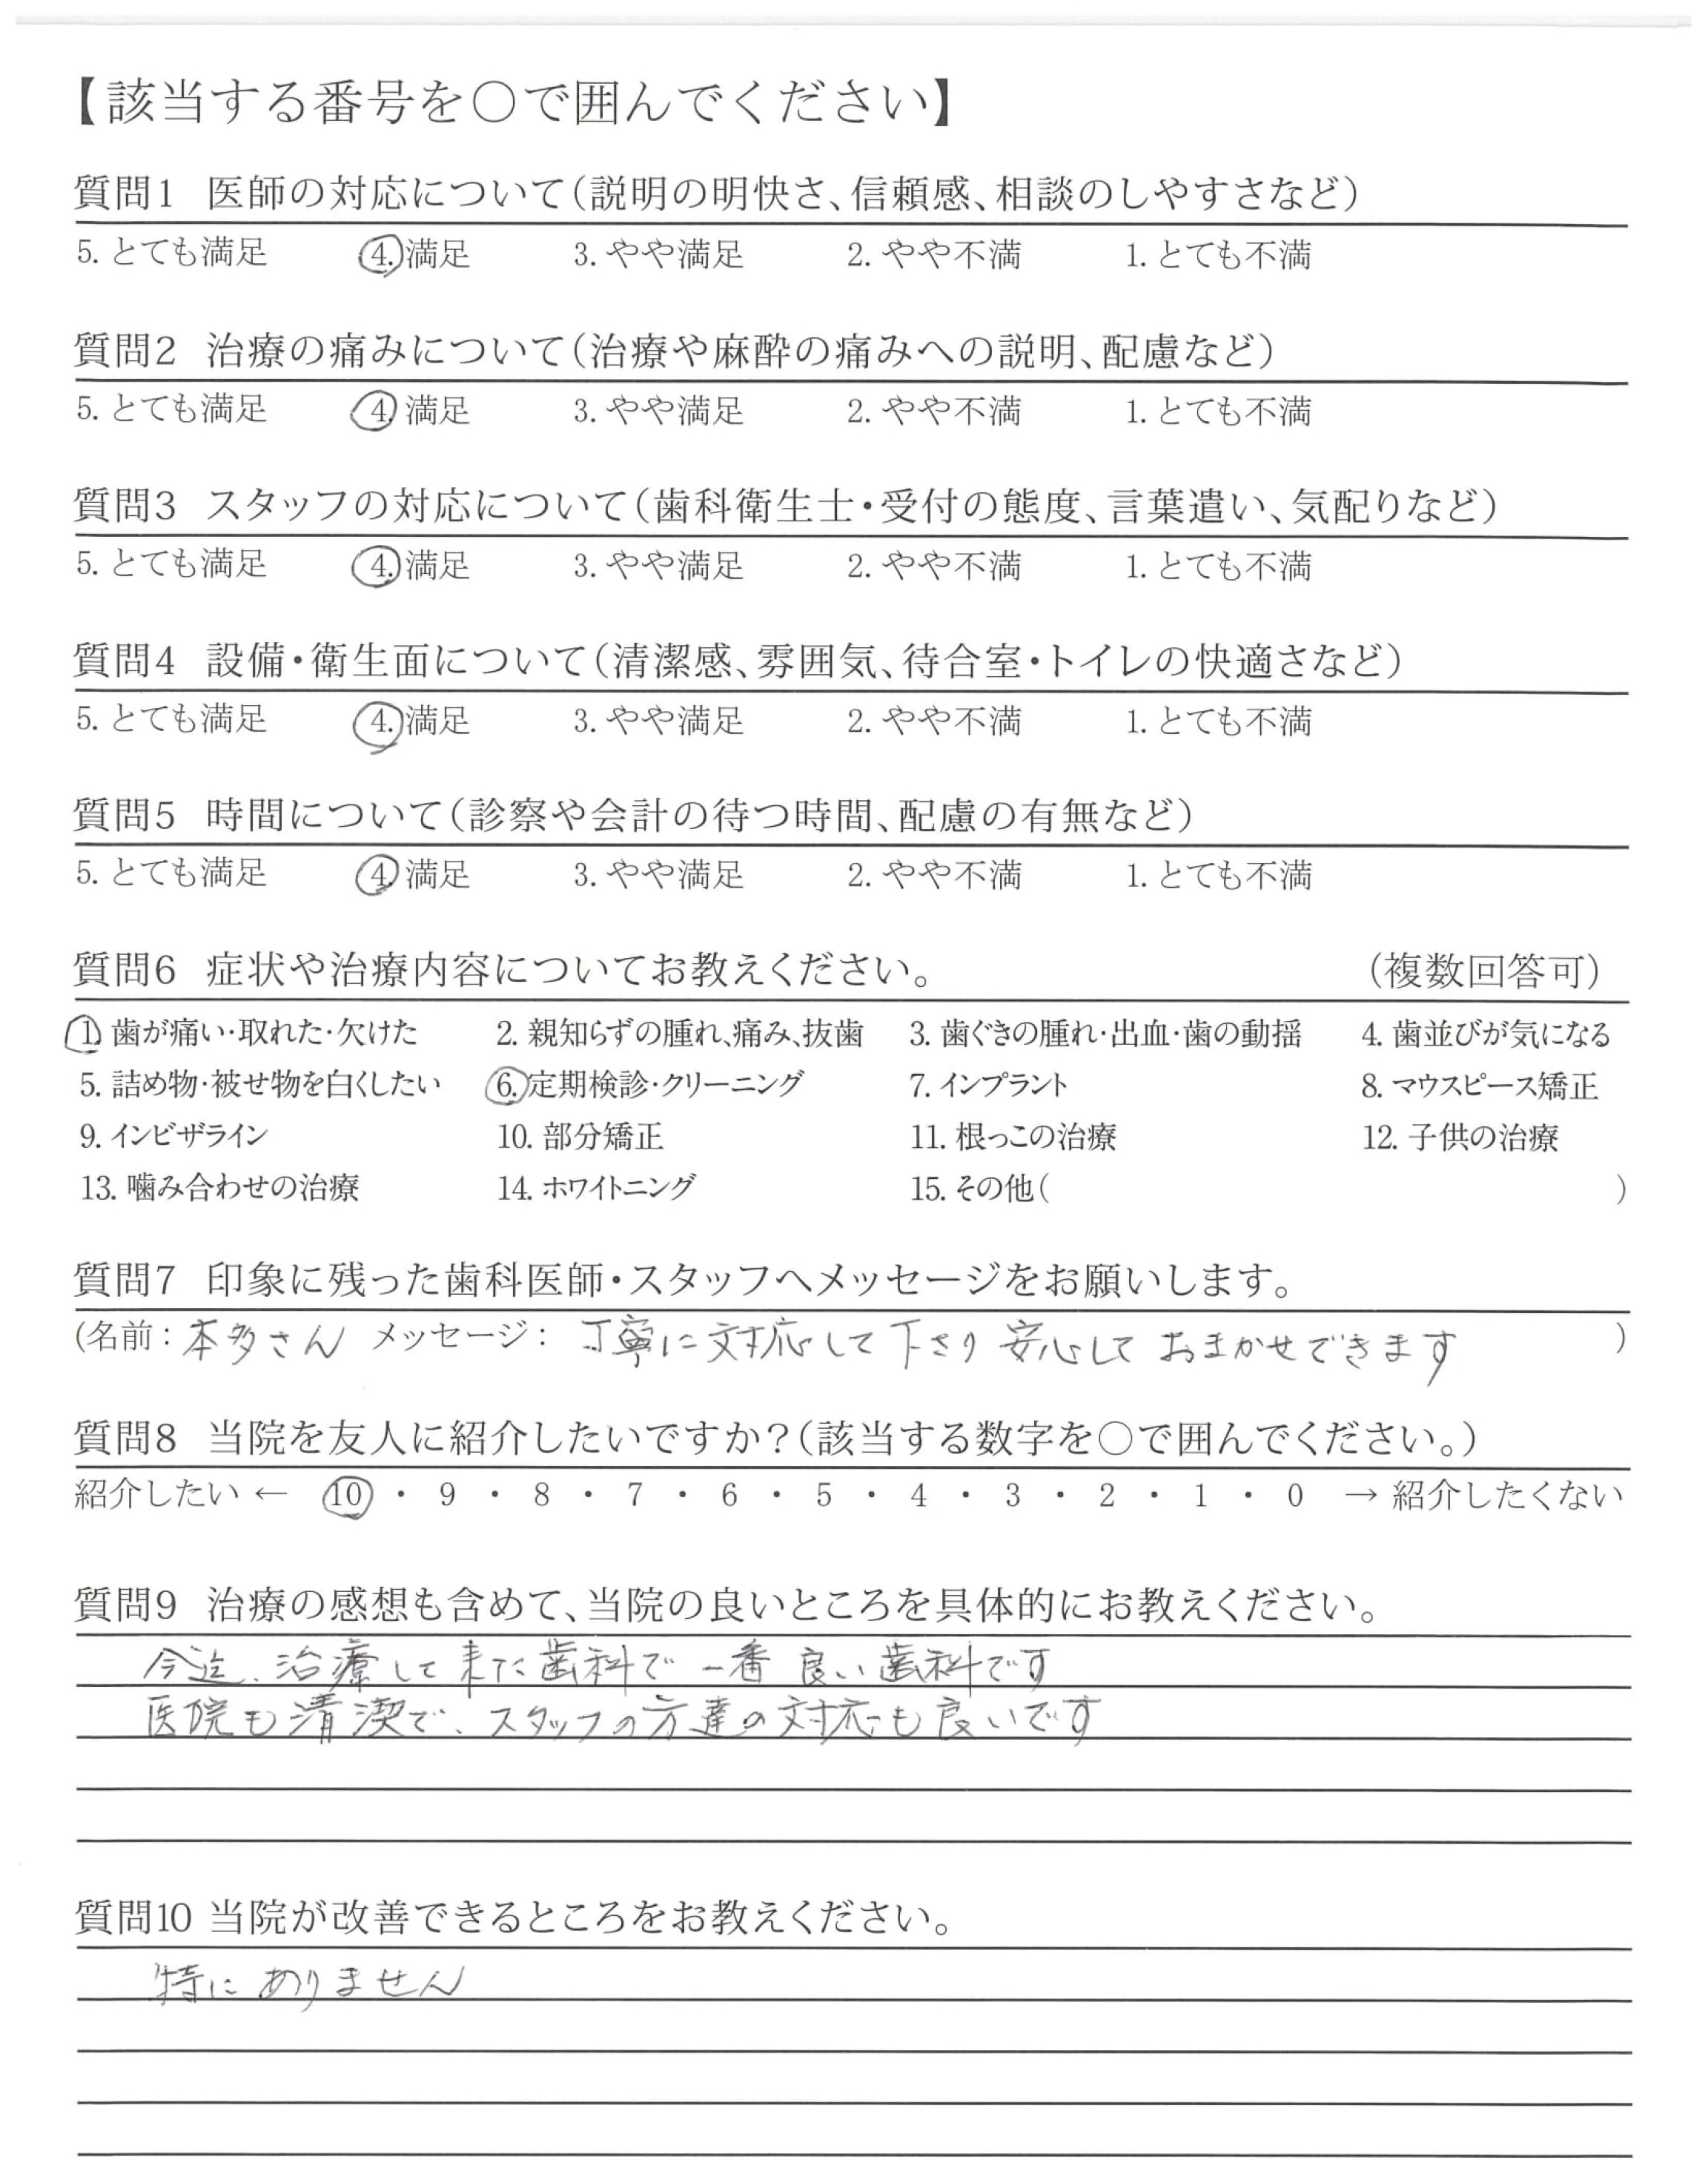 【該当する番号を〇で囲んでください】
質問1 医師の対応について(説明の明快さ、信頼感、相談のしやすさなど)
5. とても満足 4. 満足 3. やや満足 2. やや不満 1. とても不満
質問2 治療の痛みについて(治療や麻酔の痛みへの説明、配慮など)
5. とても満足 4. 満足 3. やや満足 2. やや不満 1. とても不満
質問3 スタッフの対応について(歯科衛生士・受付の態度、言葉遣い、気配りなど)
5. とても満足 4. 満足 3. やや満足 2. やや不満 1. とても不満
質問4 設備・衛生面について(清潔感、雰囲気、待合室・トイレの快適さなど)
5. とても満足 4. 満足 3. やや満足 2. やや不満 1. とても不満
質問5 時間について(診察や会計の待つ時間、配慮の有無など)
5. とても満足 4. 満足 3. やや満足 2. やや不満 1. とても不満
質問6 症状や治療内容についてお教えください。 (複数回答可)
1. 歯が痛い・取れた・欠けた 2. 親知らずの腫れ、痛み、抜歯 3. 歯ぐきの腫れ・出血・歯の動揺 4. 歯並びが気になる
5. 詰め物・被せ物を白くしたい 6. 定期検診・クリーニング 7. インプラント 8. マウスピース矯正
9. インビザライン 10. 部分矯正 11. 根っこの治療 12. 子供の治療
13. 噛み合わせの治療 14. ホワイトニング 15. その他( )
質問7 印象に残った歯科医師・スタッフへメッセージをお願いします。
(名前：本多さん メッセージ： 丁寧に対応して下さり 安心して おまかせできます )
質問8 当院を友人に紹介したいですか？(該当する数字を〇で囲んでください。)
紹介したい ← 10 ・ 9 ・ 8 ・ 7 ・ 6 ・ 5 ・ 4 ・ 3 ・ 2 ・ 1 ・ 0 → 紹介したくない
質問9 治療の感想も含めて、当院の良いところを具体的にお教えください。
今迄、治療して来た歯科で一番良い歯科です
医院も清潔で、スタッフの方達の対応も良いです
質問10 当院が改善できるところをお教えください。
特にありません